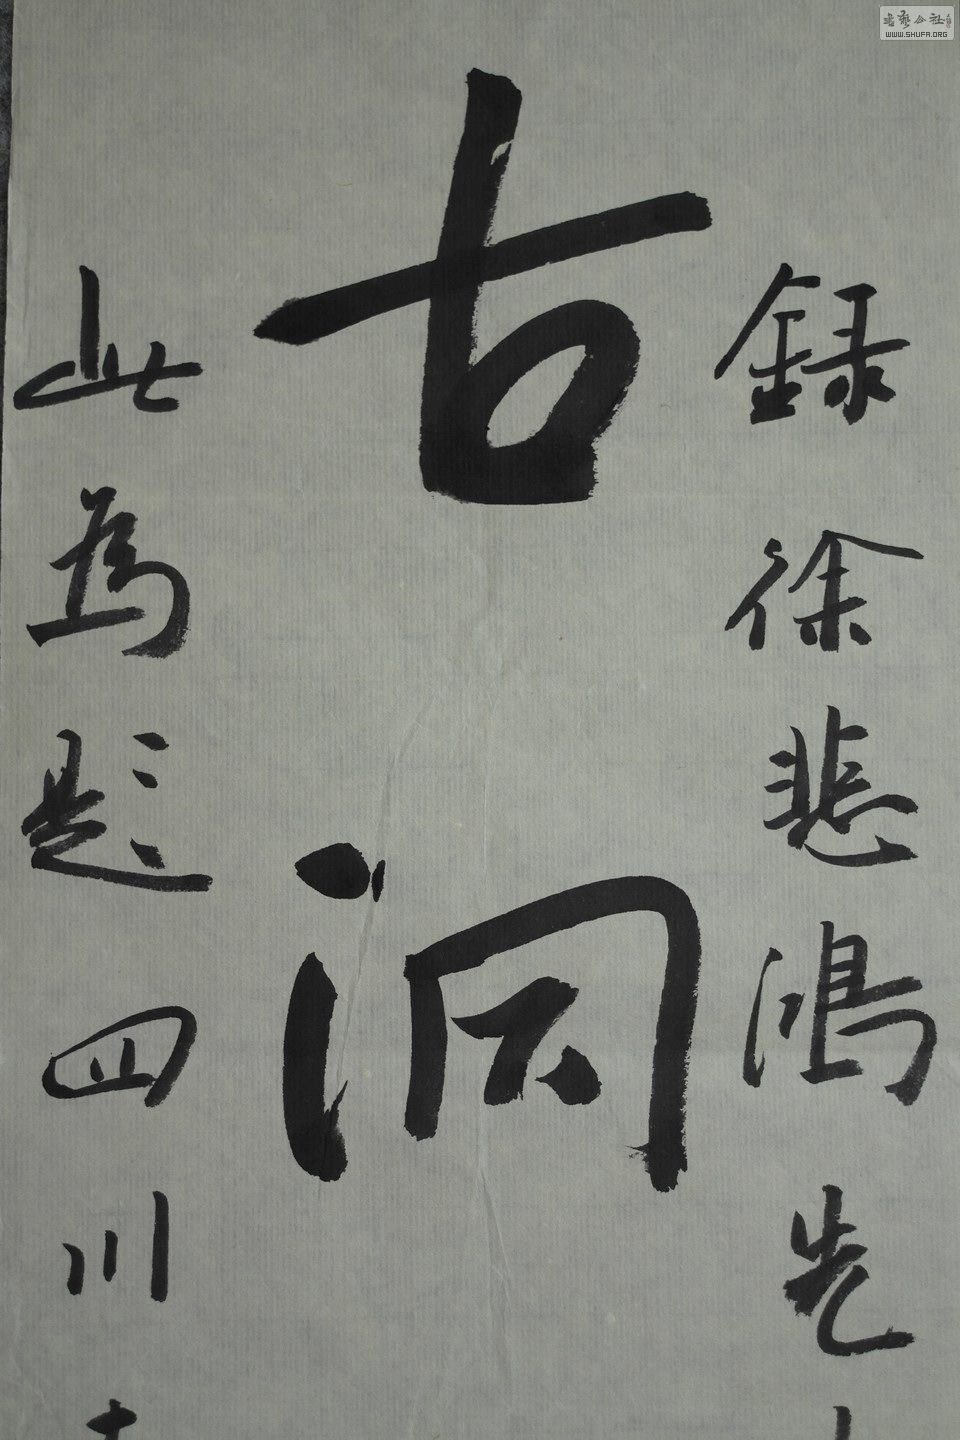 録徐悲鴻先
古洞
此為題四川
書藝公社
WWW.SHUFA.ORG